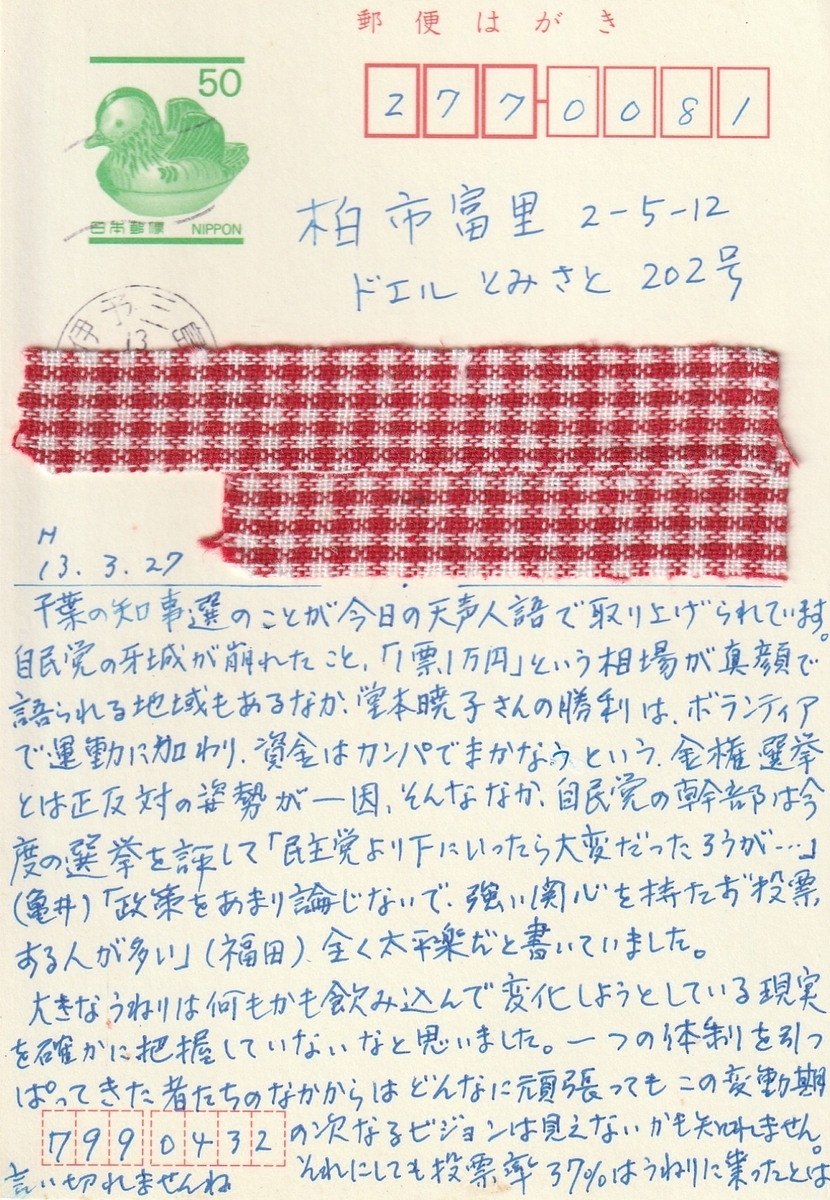 郵便はがき
50
日本郵便 NIPPON
277-0081
柏市富里 2-5-12
ドエル とみさと 202号
伊予三
13
H
13.3.27
千葉の知事選のことが今日の天声人語で取り上げられています。
自民党の牙城が崩れたこと、「1票1万円」という相場が真顔で
語られる地域もあるなか、堂本暁子さんの勝利は、ボランティア
で運動に加わり、資金はカンパでまかなうという、金権選挙
とは正反対の姿勢が一因、そんななか、自民党の幹部は今
度の選挙を評して「民主党より下にいったら大変だったろうが…」
(亀井)「政策をあまり論じないで、強い関心を持たず投票
ある人が多い」(福田)、全く太平楽だと書いていました。
大きなうねりは何もかも飲み込んで変化しようとしている現実
を確かに把握していないなと思いました。一つの体制を引っ
ぱってきた者たちのなかからはどんなに頑張ってもこの変動期
の次なるビジョンは見えないかも知れません。
7990432
それにしても投票率37%はうねりに乗ったとは
言い切れませんね